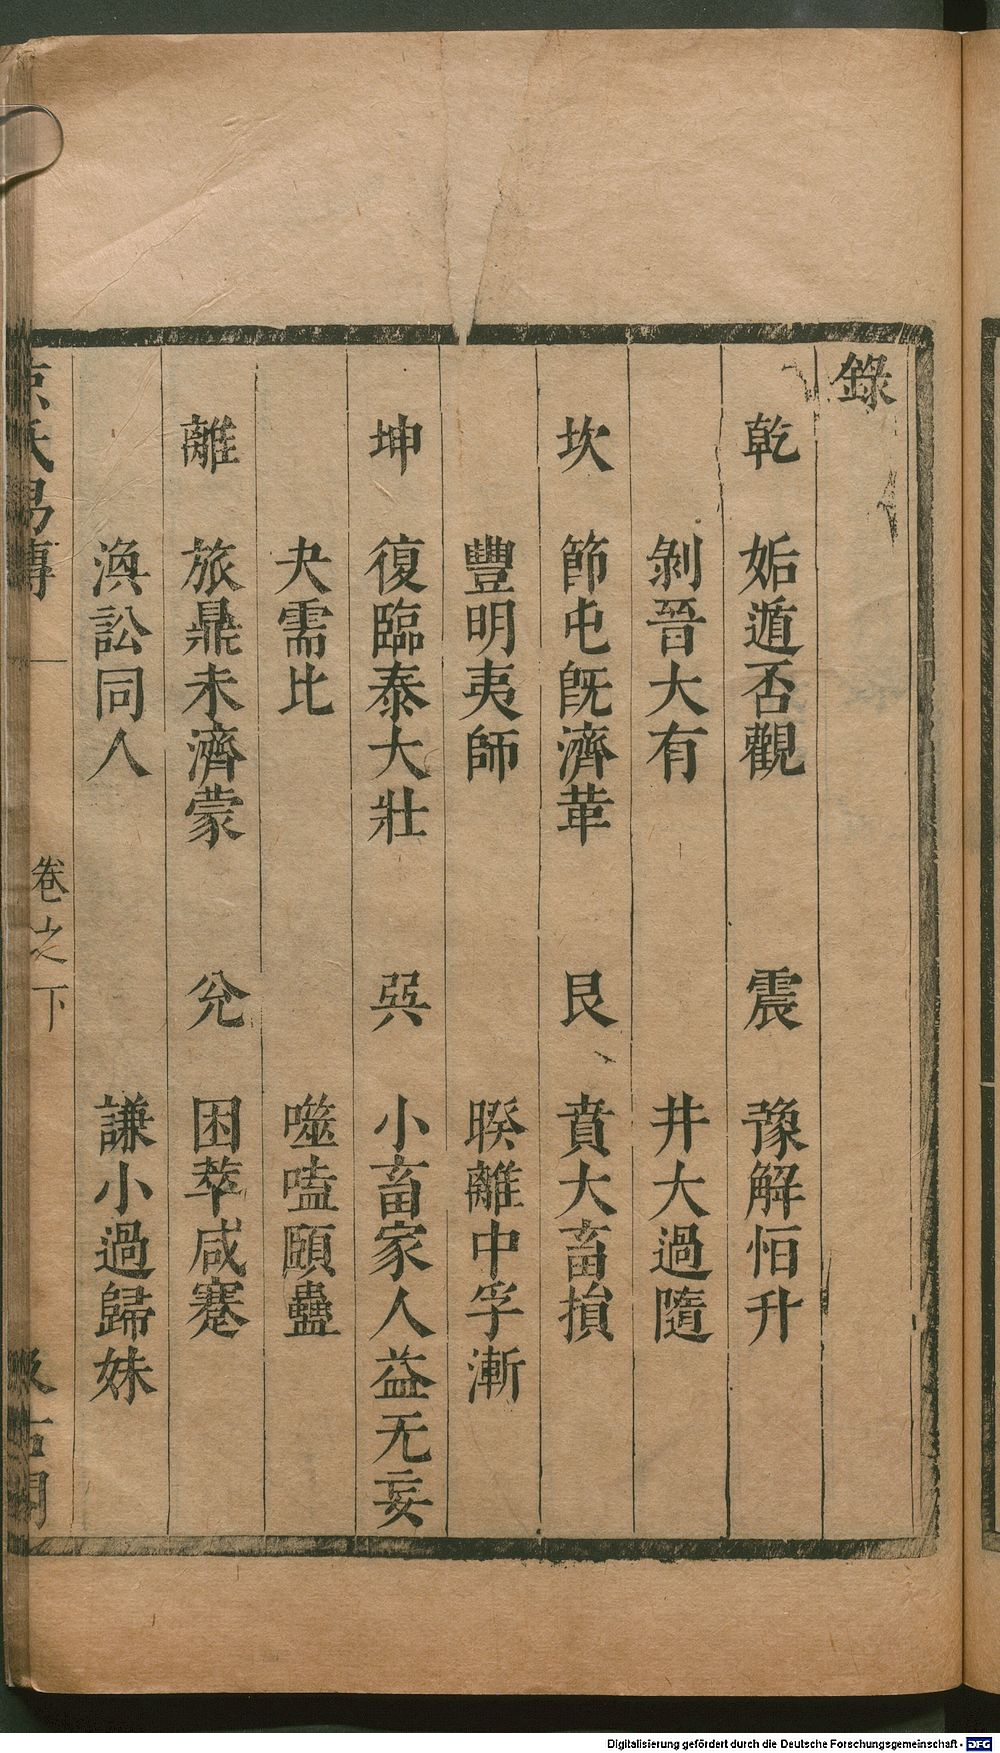 錄
乾 姤遁否觀 震 豫解恒升
剝晉大有 井大過隨
坎 節屯旣濟革 艮 賁大畜損
豐明夷師 睽離中孚漸
坤 復臨泰大壯 巽 小畜家人益无妄
夬需比 噬嗑頤蠱
離 旅鼎未濟蒙 兌 困萃咸蹇
渙訟同人 謙小過歸妹
京氏易傳 卷之下 汲古閣
Digitalisierung gefördert durch die Deutsche Forschungsgemeinschaft - DFG